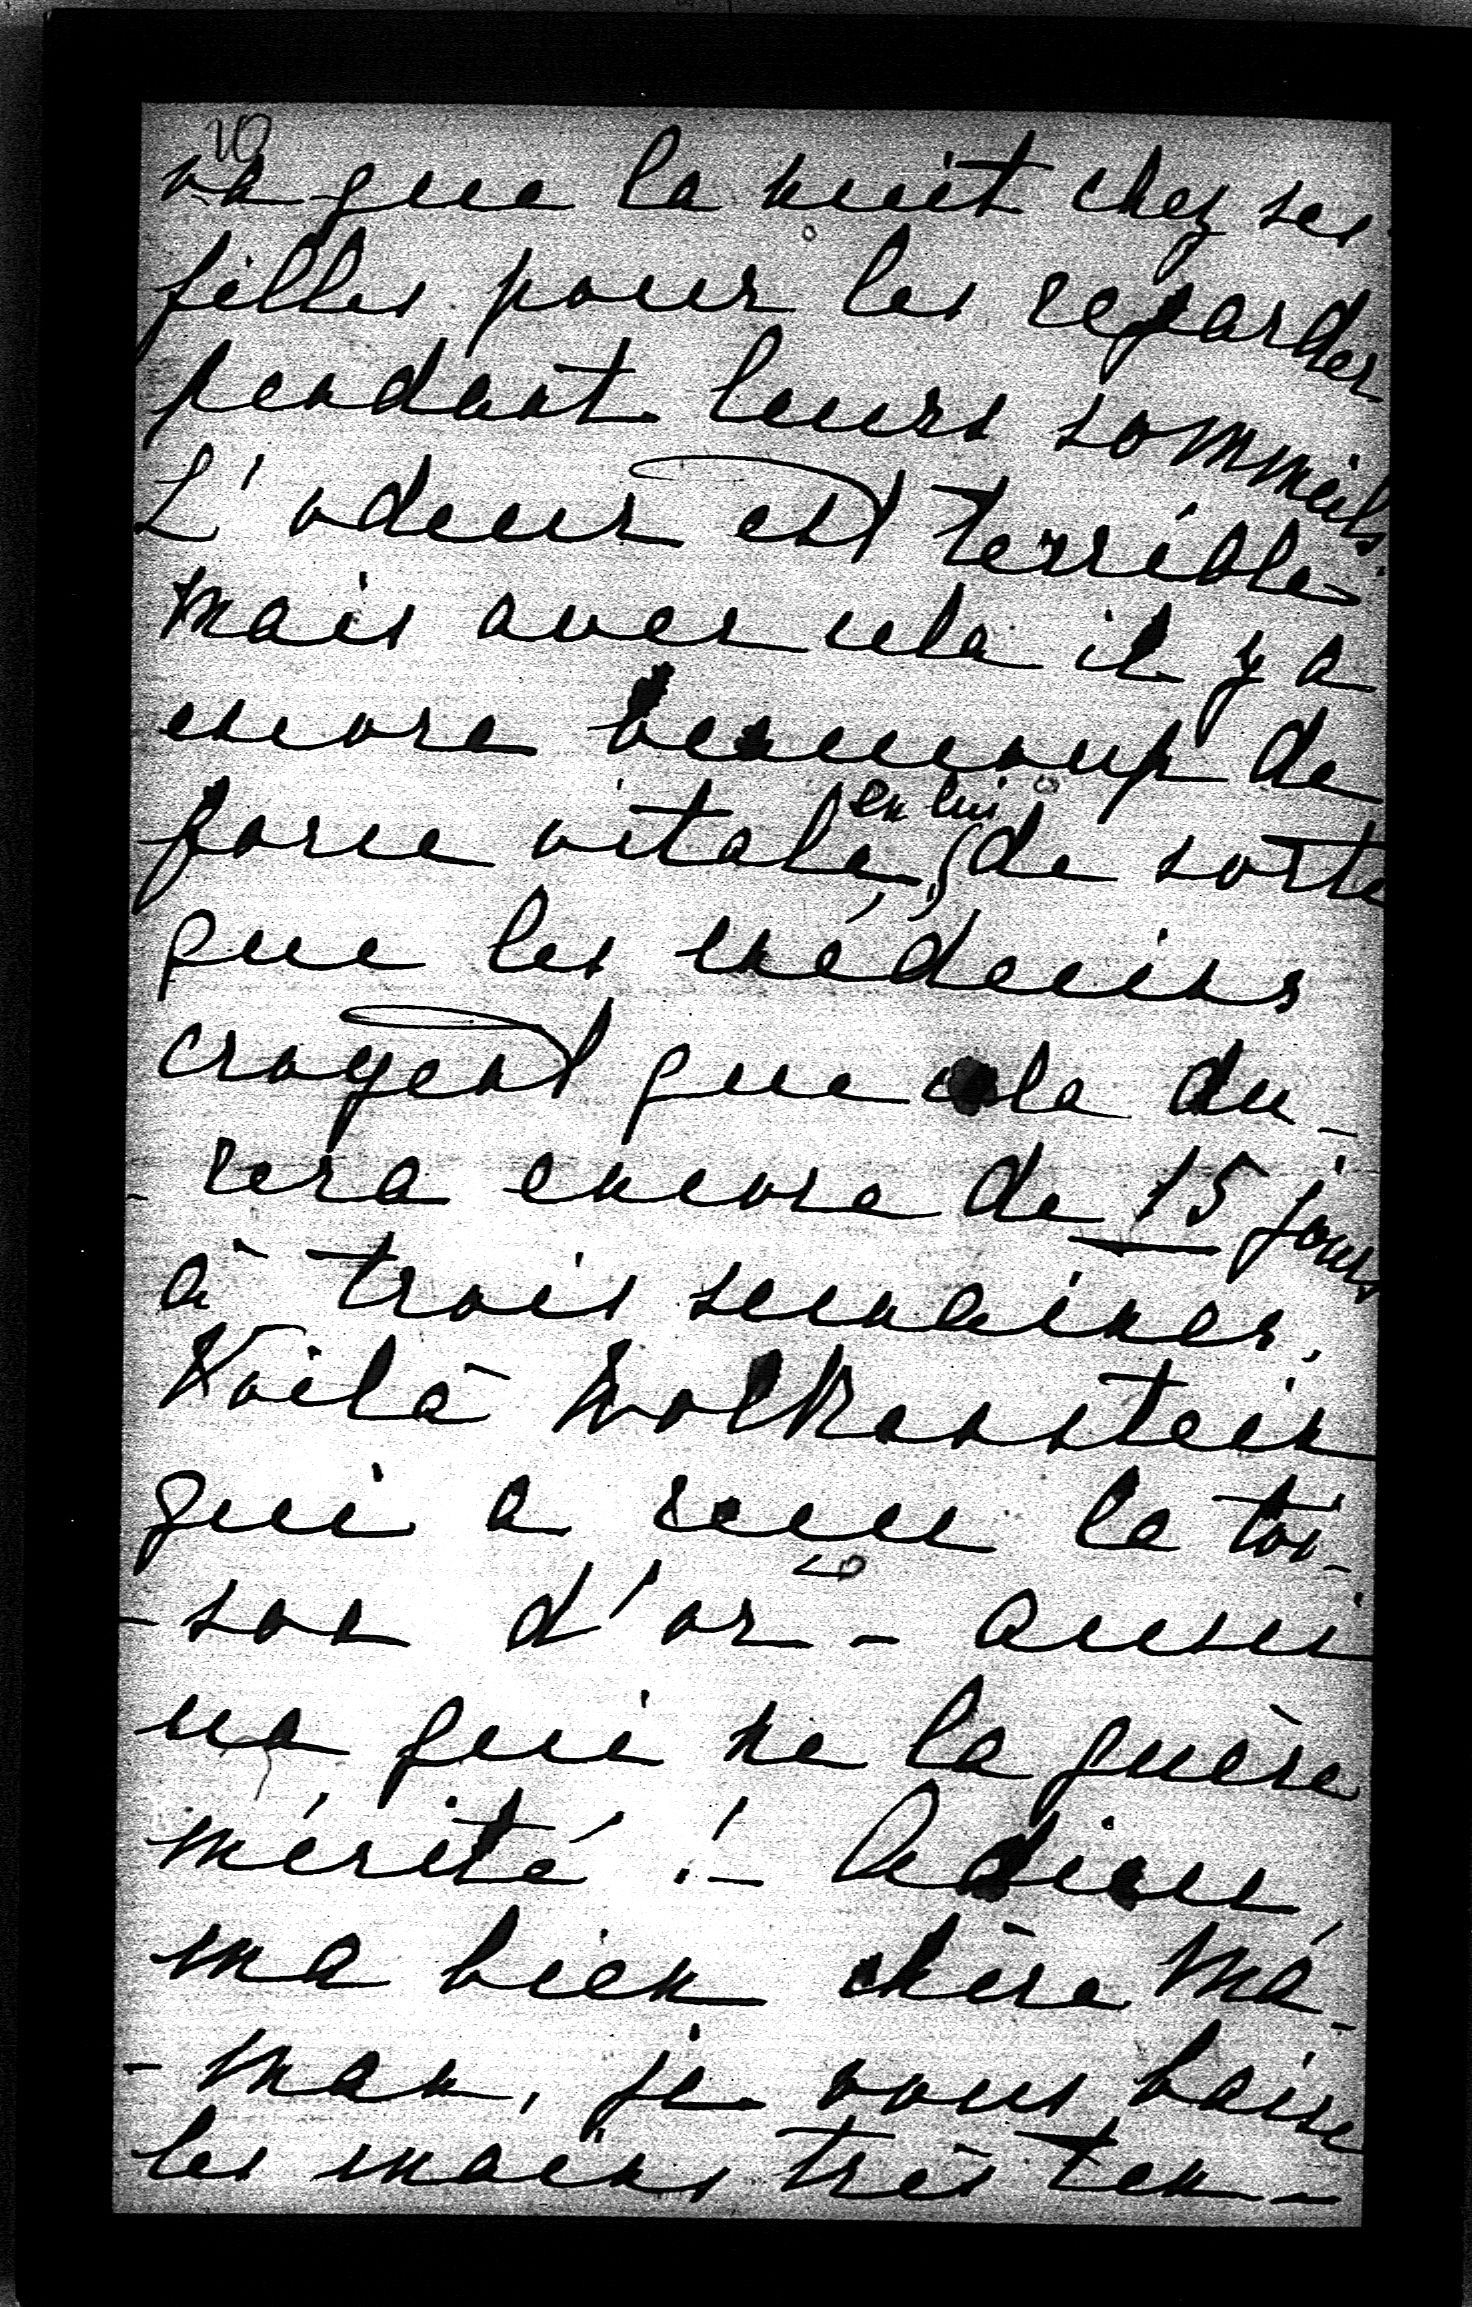 10
va que la nuit chez ses
filles pour les regarder
pendant leurs sommeils.
L'odeur est terrible
mais avec cela il y a
encore beaucoup de
force vitale, en lui de sorte
que les médecins
croyent que cela du-
-rera encore de 15 jours
à trois semaines.
Voilà Wolkenstein
qui a reçu la toi-
-son d'or - aussi
un qui ne la guère
mérité ! - Adieu,
ma bien chère Ma-
-man, je vous baise
les mains très ten-